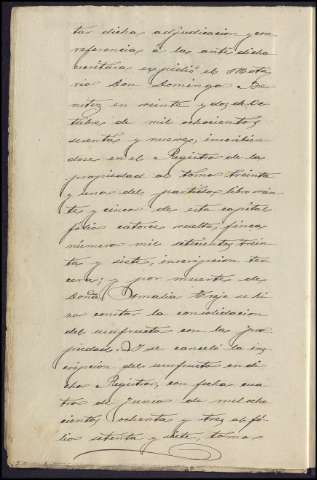 tas dicha adjudicacion y con
referencia á la ante dicha
escritura expidió el Nota
rio Don Domingo
en veinte y dos de Oc
tubre de mil ochocientos
sesenta y nueve, inscribien
dose en el Registro de la
propiedad al tomo treinta
y uno del partido, libro vein
te y cinco de esta capital
folio catorce vuelto, finca
número mil setecientos trein
ta y siete, inscripcion ter
cera; y por muerte de
Doña Amalia se hi
zo constar la consolidacion
del usufructo con la pro
piedad. Y se canceló la ins
cripcion del usufructo en di
cho Registro, con fecha cua
tro de Junio de mil ocho
cientos ochenta y tres al fó
lio setenta y siete, tomo